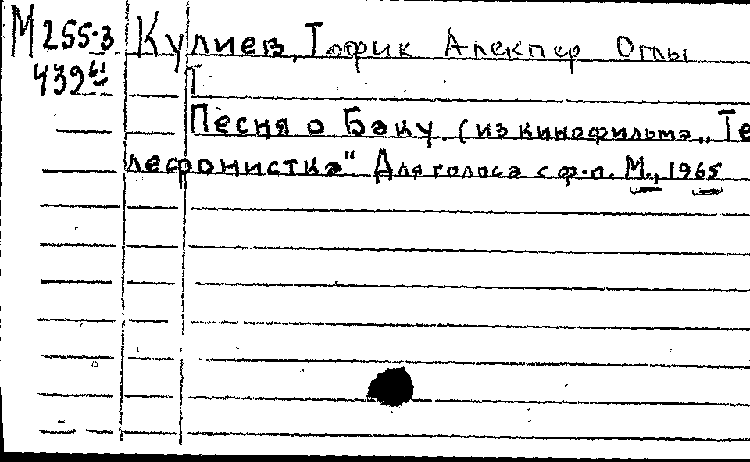 М 255-3 Кулиев, Тофик Алекпер Оглы
439
Песня о Баку. (из кинофильма „Те
лефонистка". Для голоса с ф-п. М., 1965